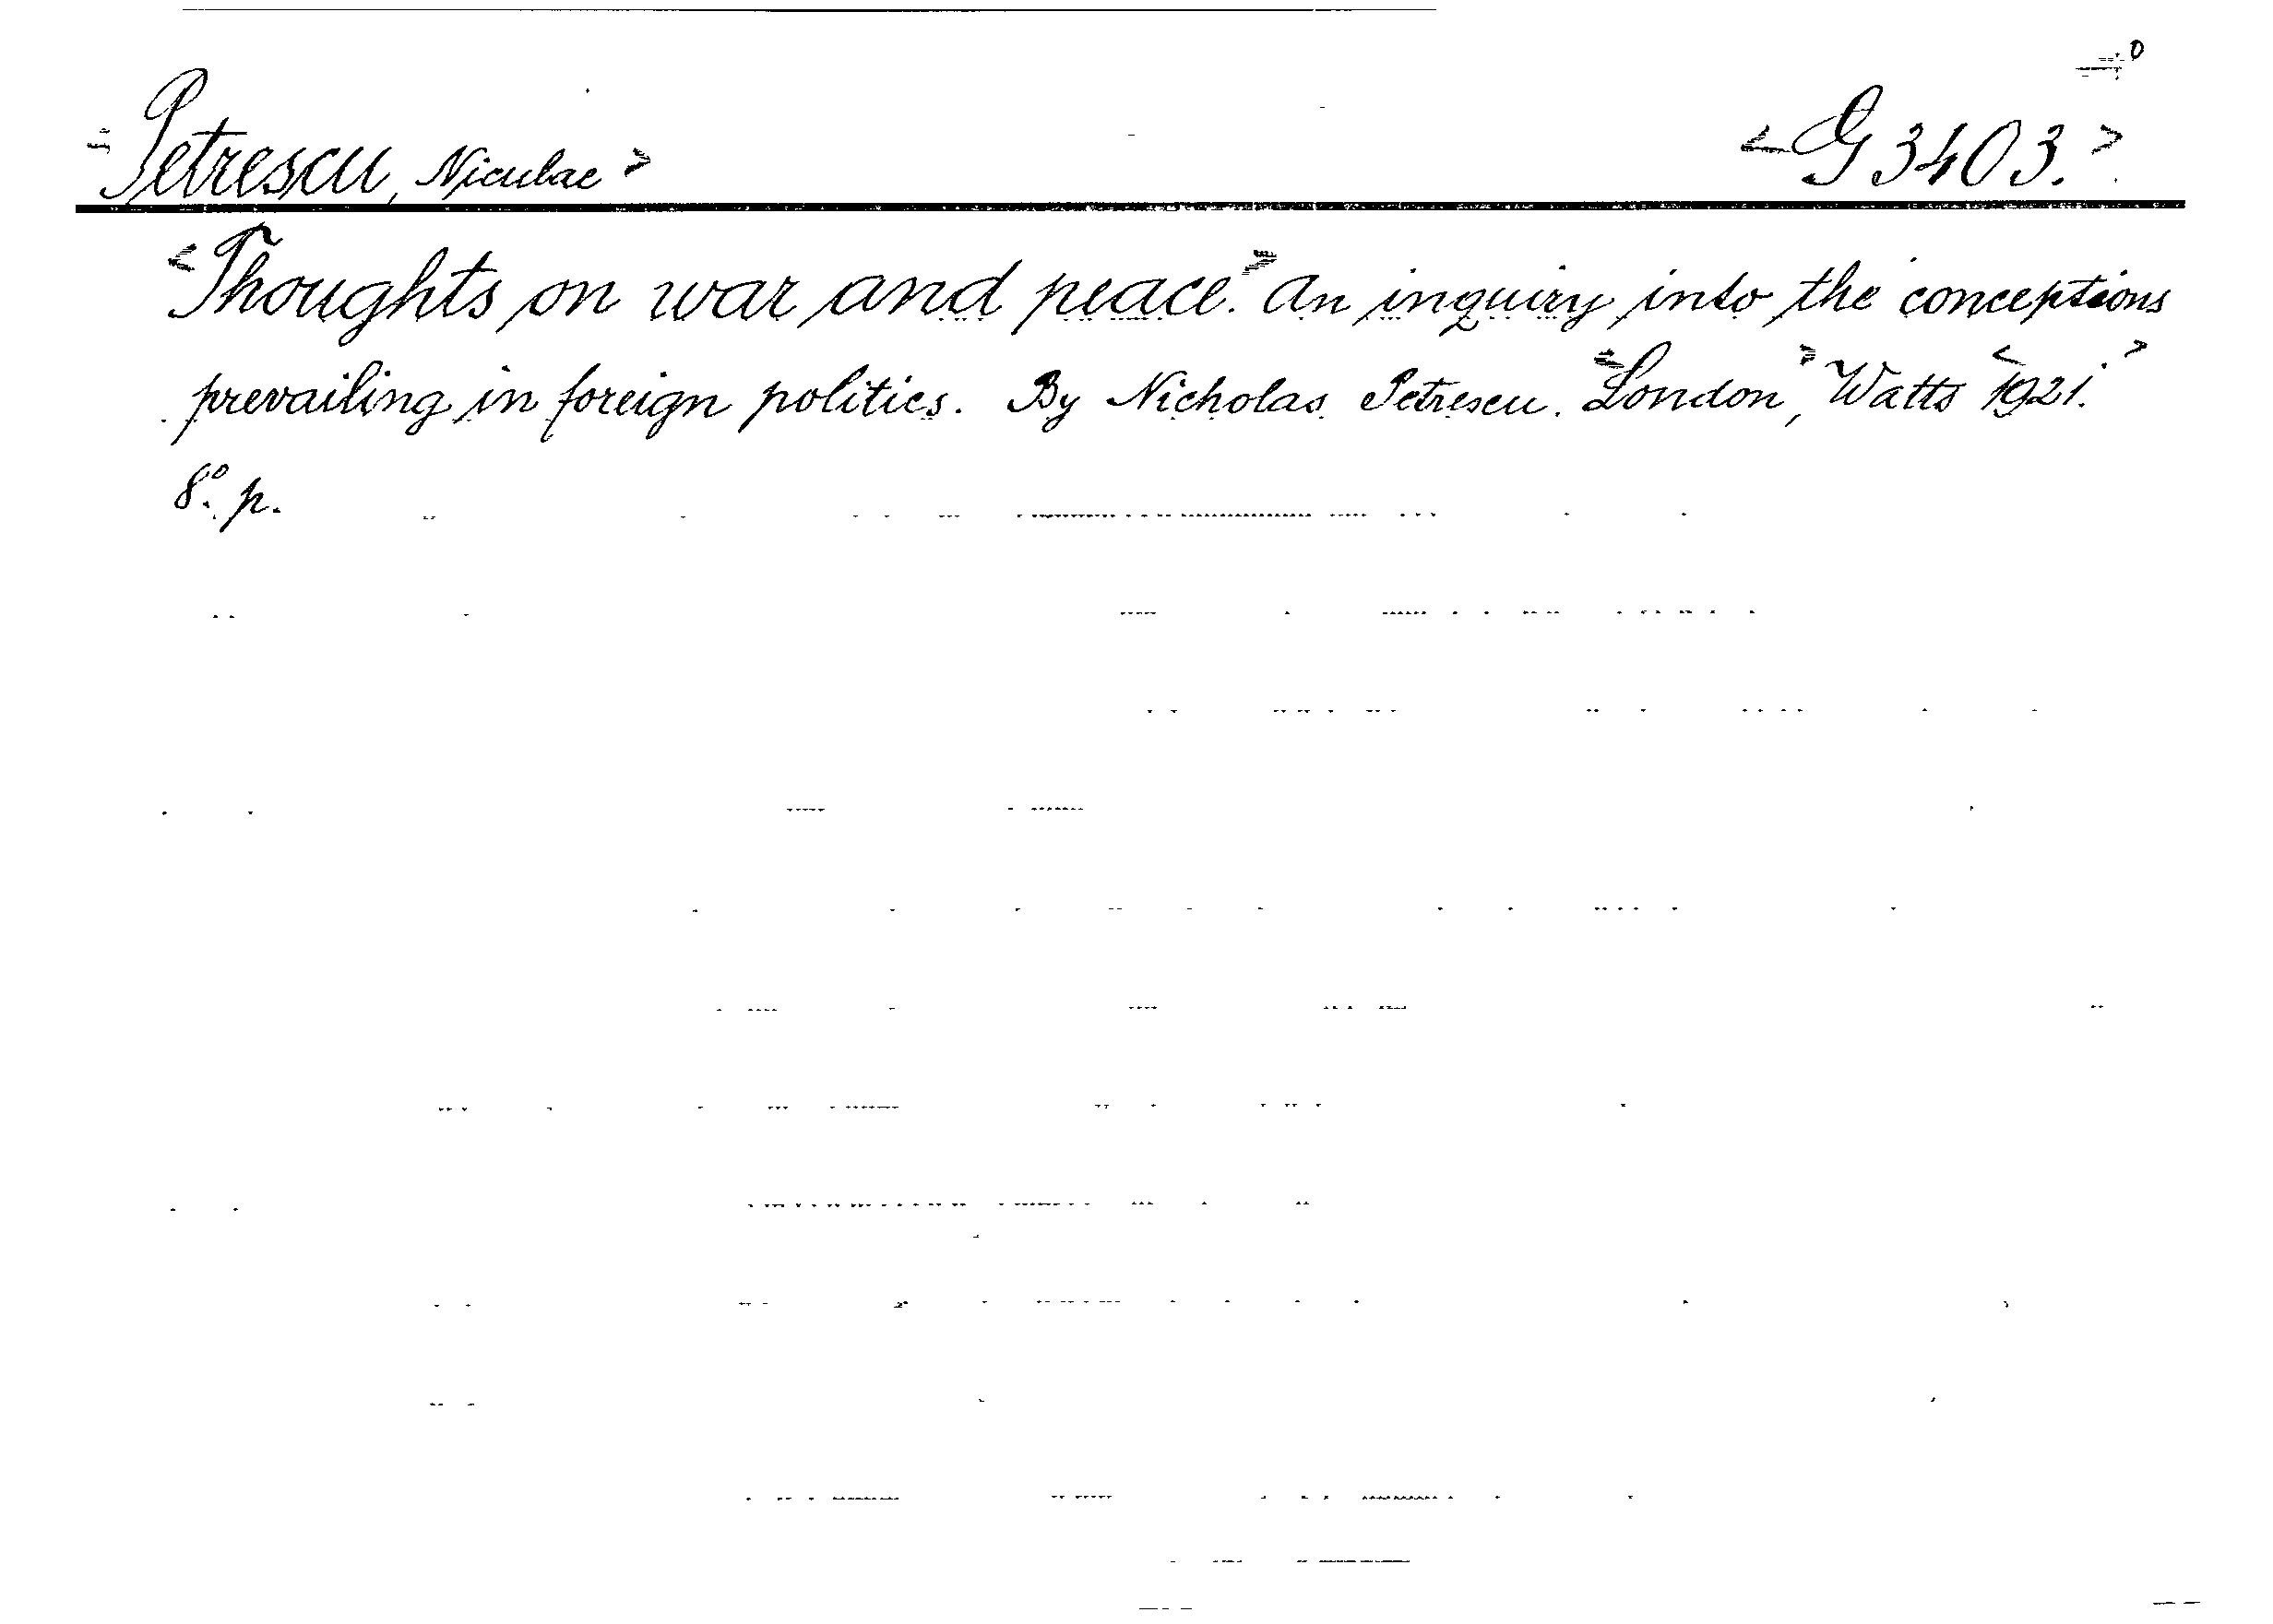 <Petrescu, Niculae> <G 3403.>
<Thoughts on war and peace.> An inquiry into the conceptions
prevailing in foreign politics. By Nicholas Petrescu. <London>, Watts <1921.>
8°. p.